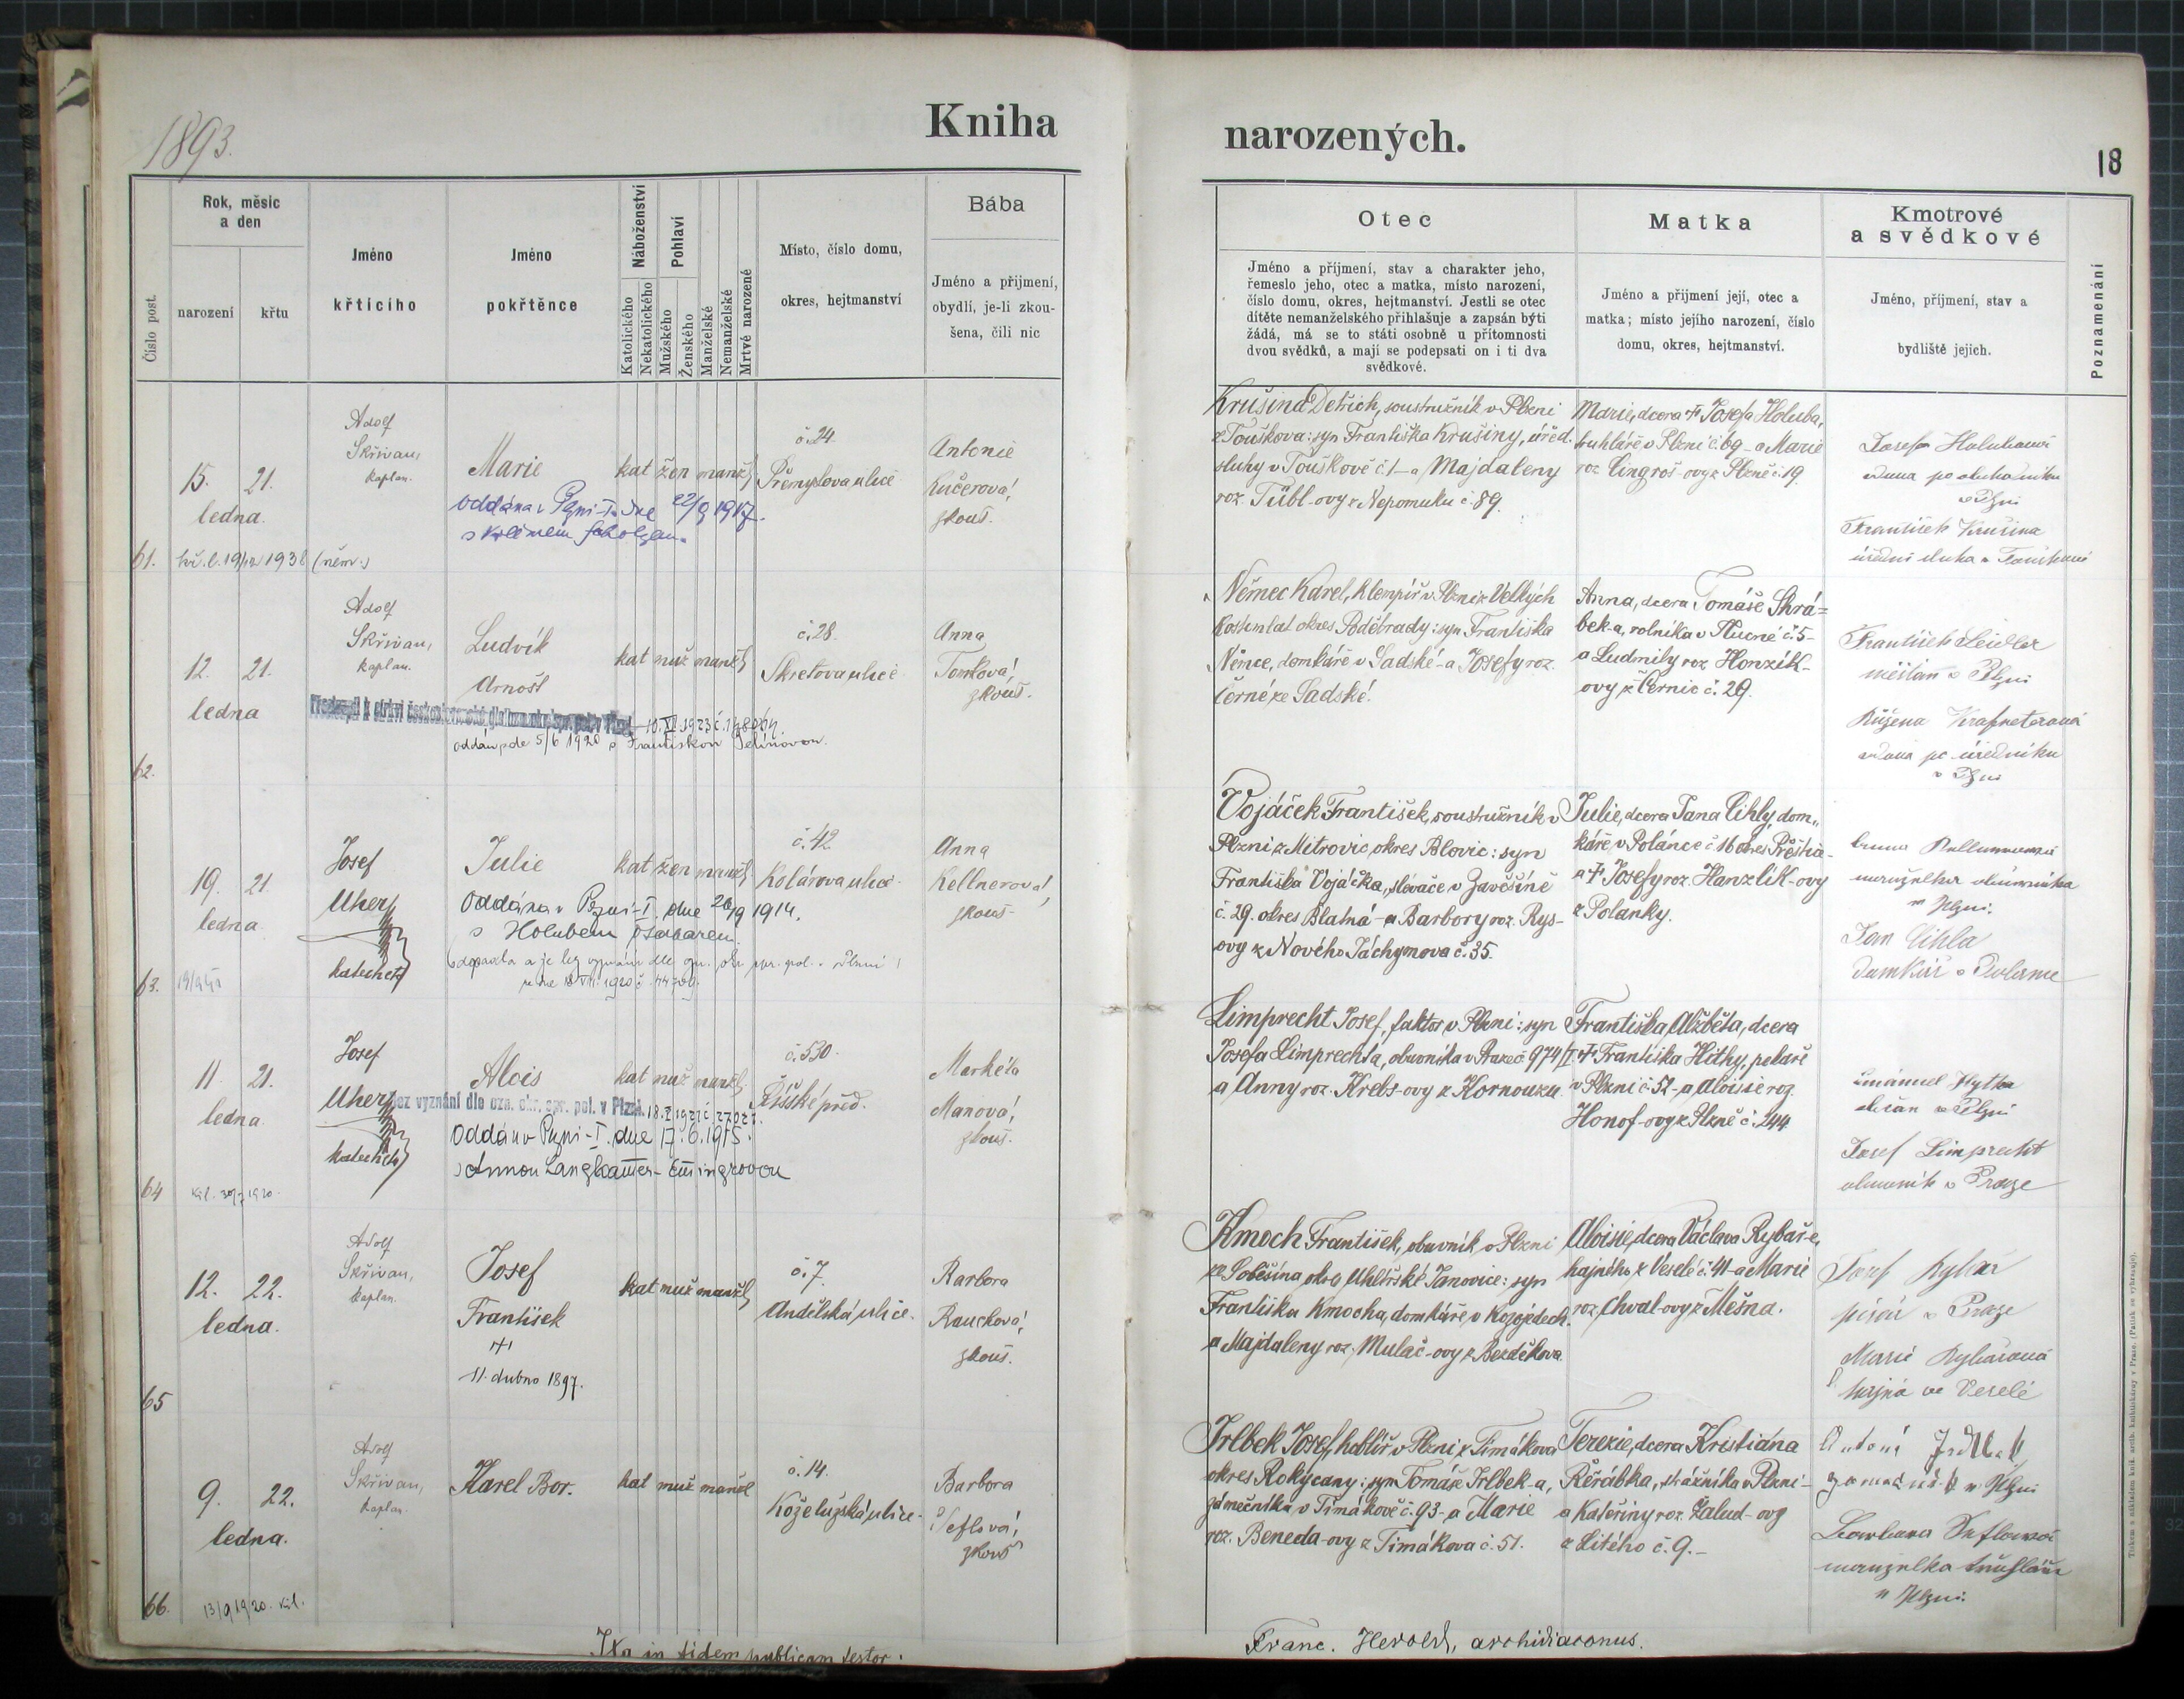 1893.
Kniha
narozených.
18
Číslo post.
Rok, měsíc
a den
narození
křtu
Jméno
křtícího
Jméno
pokřtěnce
Náboženství
Katolického
Nekatolického
Pohlaví
Mužského
Ženského
Manželské
Nemanželské
Mrtvě narozené
Místo, číslo domu,
okres, hejtmanství
Bába
Jméno a příjmení,
obydlí, je-li zkou-
šena, čili nic
Otec
Jméno a příjmení, stav a charakter jeho,
řemeslo jeho, otec a matka, místo narození,
číslo domu, okres, hejtmanství. Jestli se otec
dítěte nemanželského přihlašuje a zapsán býti
žádá, má se to státi osobně u přítomnosti
dvou svědků, a mají se podepsati on i ti dva
svědkové.
Matka
Jméno a příjmení její, otec a
matka; místo jejího narození, číslo
domu, okres, hejtmanství.
Kmotrové
a svědkové
Jméno, příjmení, stav a
bydliště jejich.
Poznamenání
61.
15. 21.
ledna.
Adolf
Skřivan,
kaplan.
Marie
kat žen manž.
č. 24.
Přemyslova ulice
Antonie
Kučerová,
zkouš.
oddána v Plzni-I. dne 22/9 1917.
(něm.)
Krušina Detřich, soustružník v Plzni
z Touškova: syn Františka Krušiny, úřed.
sluhy v Touškově č. 1 - a Majdaleny
roz. Tübl-ovy z Nepomuku č. 89.
Marie, dcera † Josefa Holuba,
truhláře v Plzni č. 69 - a Marie
roz. Cingroš-ovy z Plzně č. 19.
Josefa Holubová
v Plzni
František Krušina
úřední sluha v Touškově
62.
12. 21.
ledna
Adolf
Skřivan,
kaplan.
Ludvík
Arnošt
kat muž manž.
č. 28.
Škretova ulice
Anna
Tomková,
zkouš.
oddán dle 5/6 1920 s Františkou Jelínovou.
Němec Karel, klempíř v Plzni z Velkých
Kostomlat okres Poděbrady: syn Františka
Němce, domkáře v Sadské - a Josefy roz.
Černé ze Sadské.
Anna, dcera Tomáše Skrá=
bek-a, rolníka v Tlucné č. 5 -
a Ludmily roz. Honzík-
ovy z Černic č. 29.
František Leidler
měšťan v Plzni
Růžena
vdova po úředníku
v Plzni
63.
19. 21.
ledna
Josef
Uherj
katecheta
Julie
kat žen manž.
č. 42
Kolárova ulice
Anna
Kellnerová,
zkouš.
Oddána v Plzni-I. dne 26/9 1914.
s Holubem
Vojáček František, soustružník v
Plzni z Mitrovic, okres Blovic: syn
Františka Vojáčka, slévače v Zavěšíně
č. 29. okres Blatná - a Barbory roz. Rys-
ovy z Nového Jáchymova č. 35.
Julie, dcera Jana Cihly, dom-
káře v Polánce č. 16 okres Přeštice -
a † Josefy roz. Hanzlík-ovy
z Polanky.
manželka
v Plzni.
Jan Cihla
domkář v Polance
64
11. 21.
ledna.
Josef
Uherj
katecheta
Alois
kat muž manž.
č. 530.
Říšské před.
Markéta
Manová,
zkouš.
bez vyznání dle ozn. okr. spr. pol. v Plzni
Oddán v Plzni-I. dne 17. 6. 1915.
s Annou
Limprecht Josef, faktor v Plzni: syn
Josefa Limprechta, obuvníka v Praze č. 974/I.
a Anny roz. Krebs-ovy z Hornouzu
Františka Alžběta, dcera
† Františka Hitky, pekaře
v Plzni č. 52 - a Aloisie roz.
Honof-ovy z Plzně č. 244.
Emanuel Hytka
v Plzni
Josef Limprecht
obuvník v Praze
65
12. 22.
ledna.
Adolf
Skřivan,
kaplan.
Josef
František
11. dubna 1897.
kat muž manž.
č. 7.
Andělská ulice.
Barbora
Rauchová,
zkouš.
Kmoch František, obuvník v Plzni
ze Soběšína okr. Uhlířské Janovice: syn
Františka Kmocha, domkáře v Kozojedech
a Majdaleny roz. Mulač-ovy z Bezděkova.
Aloisie, dcera Václava Rybáře,
hajného z Veselé č. 41 - a Marie
roz. Chval-ovy z Mešna.
Josef Rybář
písař v Praze
Marie Rybářová
hajná ve Veselé
66.
9. 22.
ledna.
Adolf
Skřivan,
kaplan.
Karel Bor.
kat muž manžel
č. 14.
Koželužská ulice.
Barbora
Šeflová,
zkouš
13/9 1920.
Irlbek Josef, kotlíř v Plzni z Timákova
okres Rokycany: syn Tomáše Irlbek-a,
zámečníka v Timákově č. 93 - a Marie
roz. Beneda-ovy z Timákova č. 51.
Terezie, dcera Kristiána
Řeřábka, strážníka v Plzni -
a Kateřiny roz. Žalud-ovy
z Litého č. 9. -
v Plzni
Barbora Šeflová
manželka truhláře
v Plzni.
Ita in fidem publicam testor:
Franc. Herold, archidiaconus.